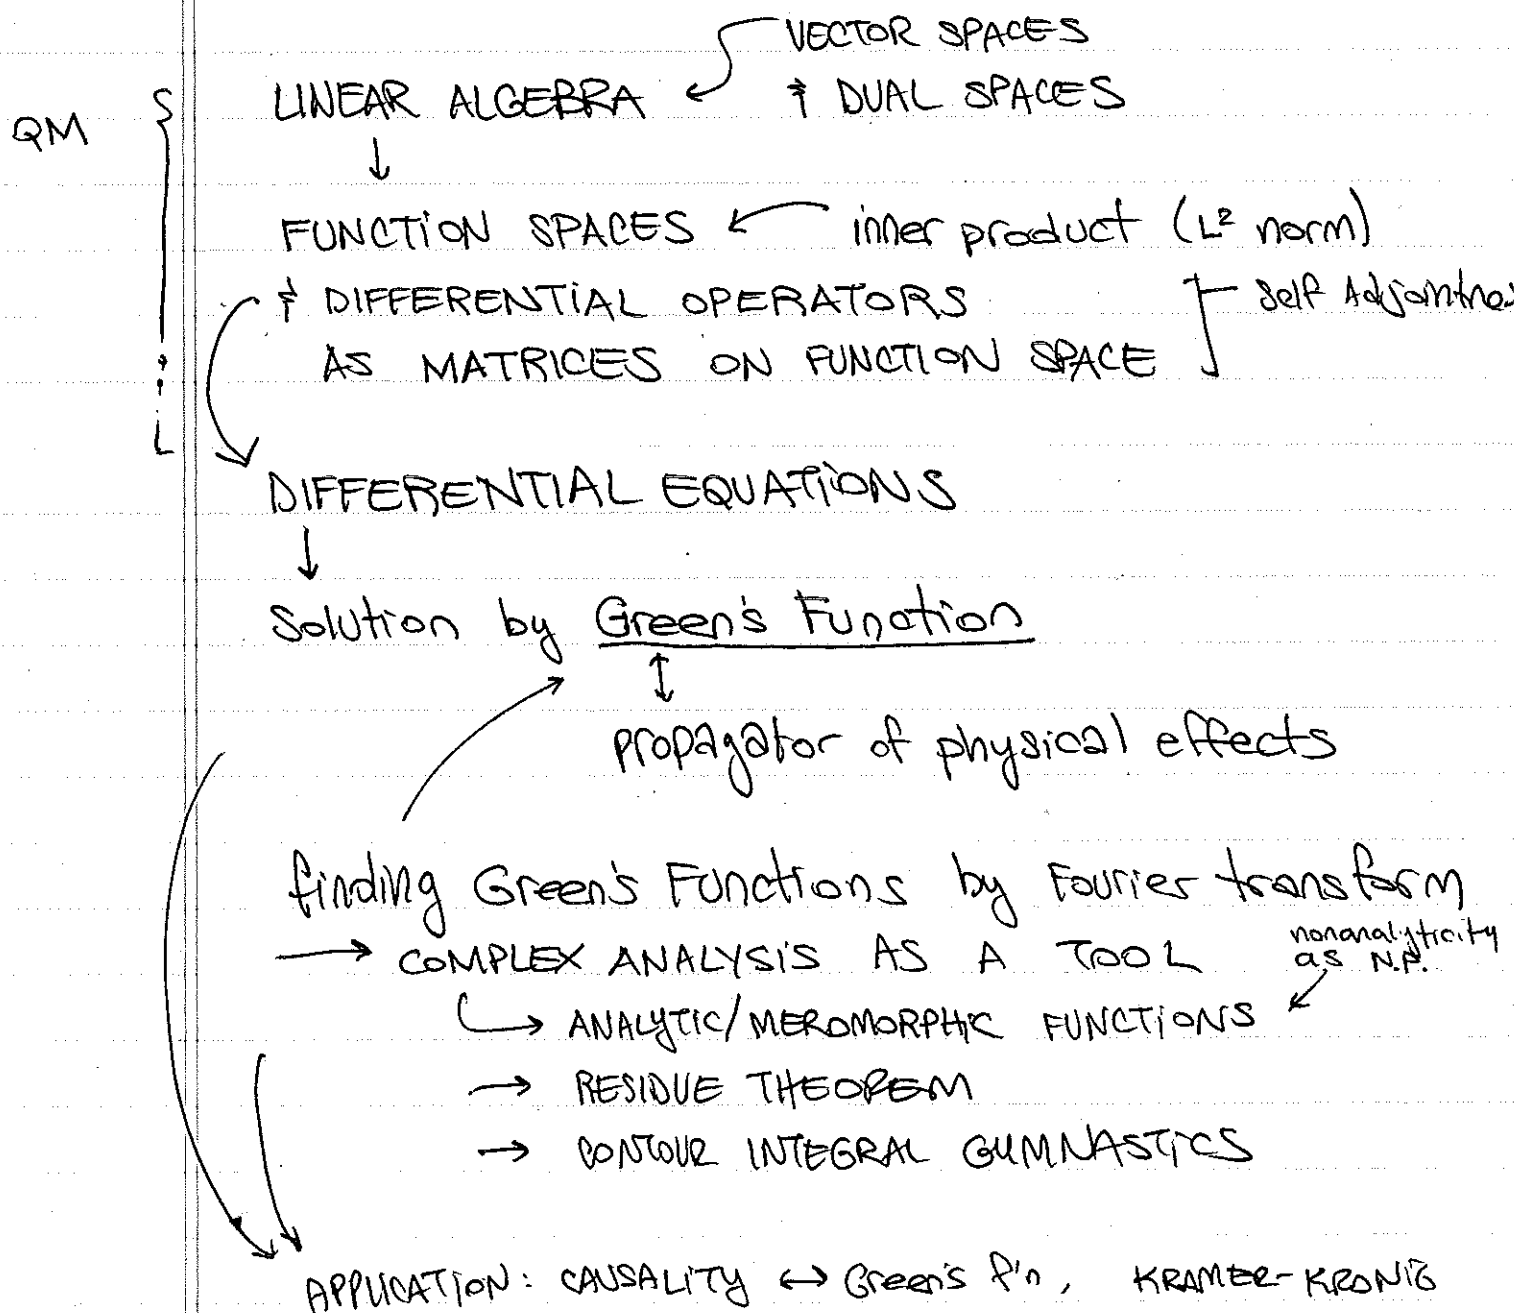 VECTOR SPACES
LINEAR ALGEBRA ← & DUAL SPACES
QM
↓
FUNCTION SPACES ← inner product (L² norm)
& DIFFERENTIAL OPERATORS
Self Adjointnes
AS MATRICES ON FUNCTION SPACE
DIFFERENTIAL EQUATIONS
↓
Solution by Green's Function
↕
propagator of physical effects
finding Green's Functions by Fourier transform
→ COMPLEX ANALYSIS AS A TOOL
nonanalyticity
as N.P.
↳ ANALYTIC/MEROMORPHIC FUNCTIONS
→ RESIDUE THEOREM
→ CONTOUR INTEGRAL GYMNASTICS
APPLICATION: CAUSALITY ↔ Green's f'n, KRAMER-KRONIG